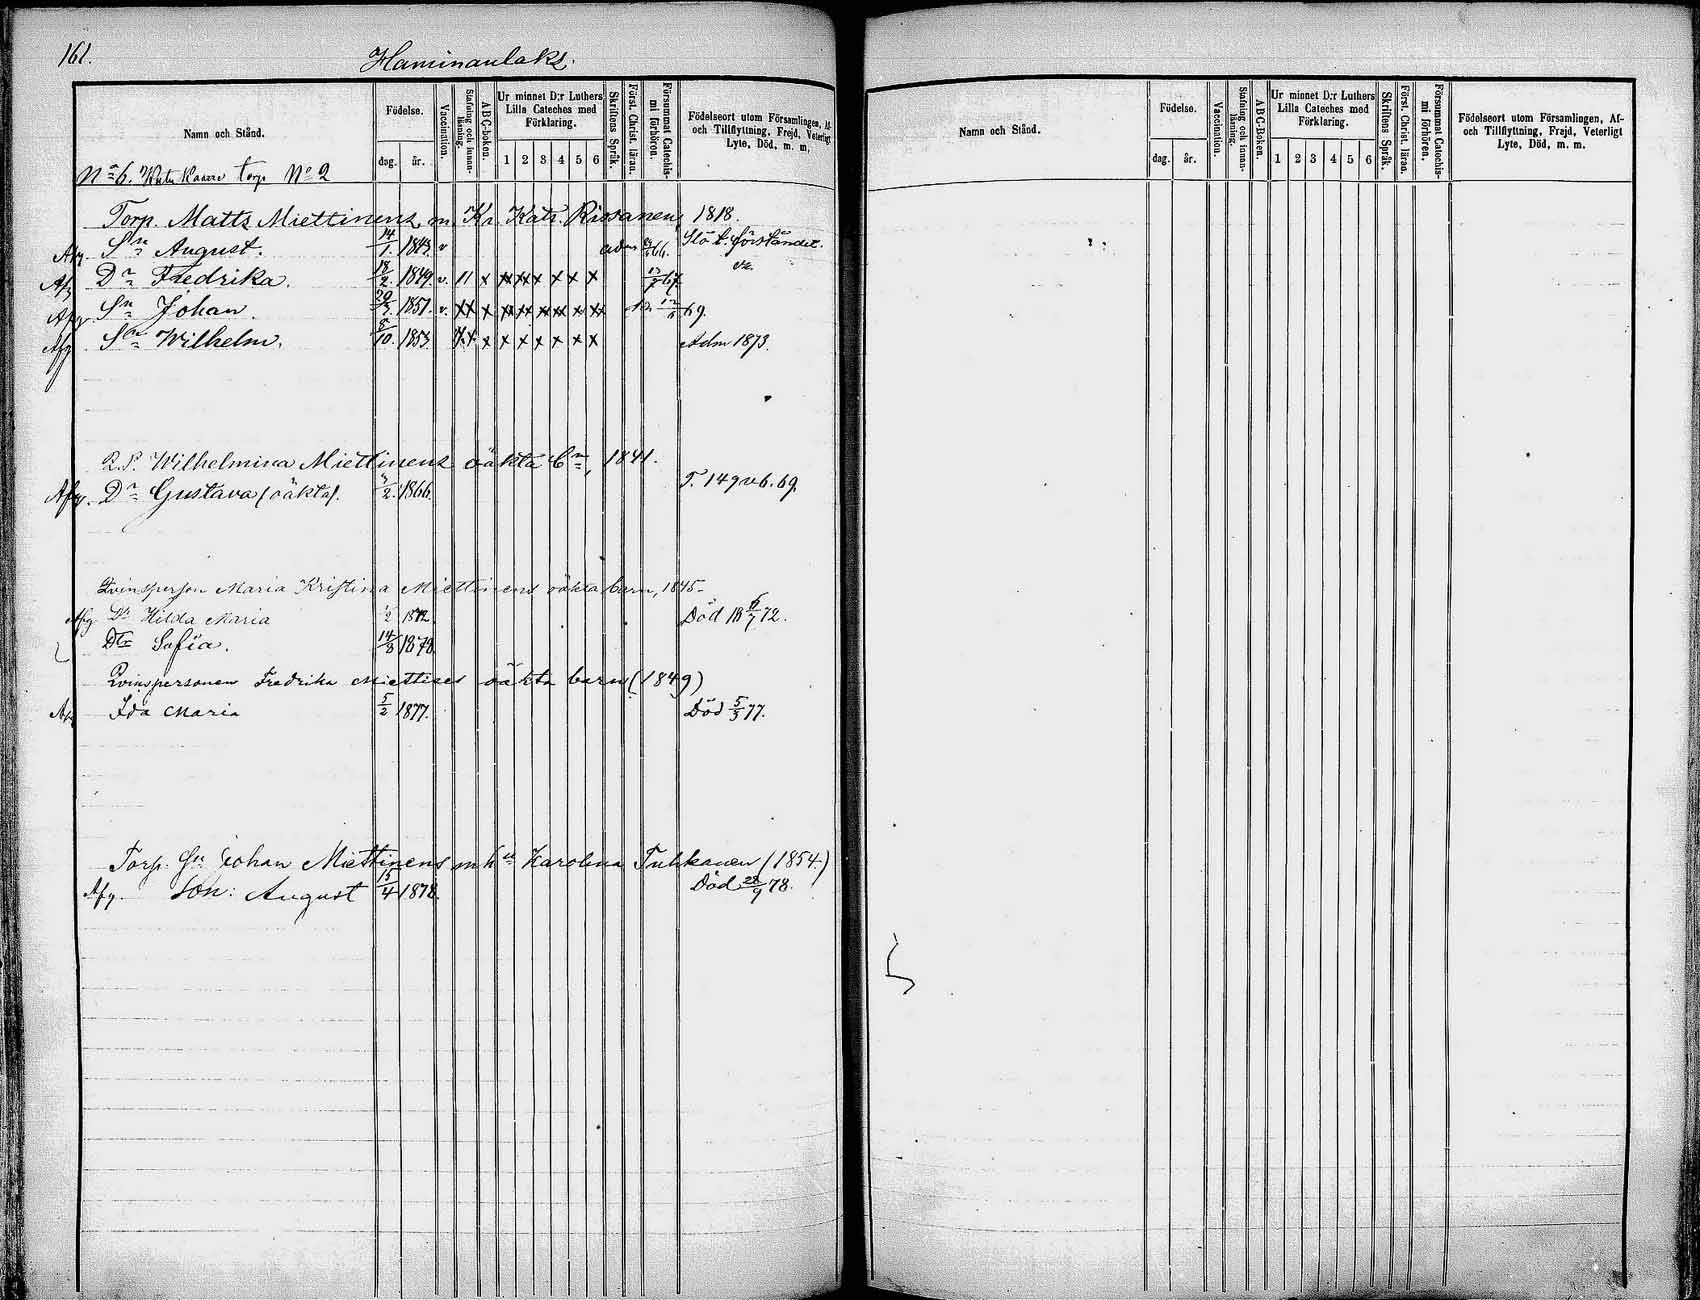 161.
Haminanlaks.
Namn och Stånd.
Födelse.
dag. år.
Vaccination.
Stafning och innanläsning.
ABC-boken.
Ur minnet D:r Luthers Lilla Cateches med Förklaring.
1 2 3 4 5 6
Skriftens Språk.
Först. Christ. läran.
Försummat Catechismi förhören.
Födelseort utom Församlingen, Af- och Tillflyttning, Frejd, Veterligt Lyte, Död, m. m.
N:o 6. torp N:o 2
Torp. Matts Miettinens m. Kr. Kats. Rissanen, 1818.
Afg. Sn August. 14/1. 1843. v 66. Slö t. förståndet.
Afg Dr Fredrika. 18/2. 1849. v. 11 x x x x x x x 67
Afg. Sn Johan. 1851. v. x x x x x x x x x 69.
Afg Sn Wilhelm. 8/10. 1853. x x x x x x x x x Adm 1873.
Q.P. Wilhelmina Miettinens oäkta bn, 1841.
Afg. Dr Gustava (oäkta). 3/2. 1866. T. 149 v b. 69.
Qvinsperson Maria Kristina Miettinens oäkta barn, 1845
Afg. Dr Hilda Maria 1/2 1872. Död 18 6/7 72.
Dtr Sofia. 14/8 1878
Qvinspersonen Fredrika Miettises oäkta barn (1849)
Afg Ida Maria 5/2 1877. Död 5/3 77.
Torp. Sn Johan Miettinens m hu Karolina Tuhkanen (1854.)
Afg. Son: August 15/4 1878. Död 28/9 78.
Namn och Stånd.
Födelse.
dag. år.
Vaccination.
Stafning och innanläsning.
ABC-Boken.
Ur minnet D:r Luthers Lilla Cateches med Förklaring.
1 2 3 4 5 6
Skriftens Språk.
Först. Christ. läran.
Försummat Catechismi förhören.
Födelseort utom Församlingen, Af- och Tillflyttning, Frajd, Veterligt Lyte, Död, m. m.